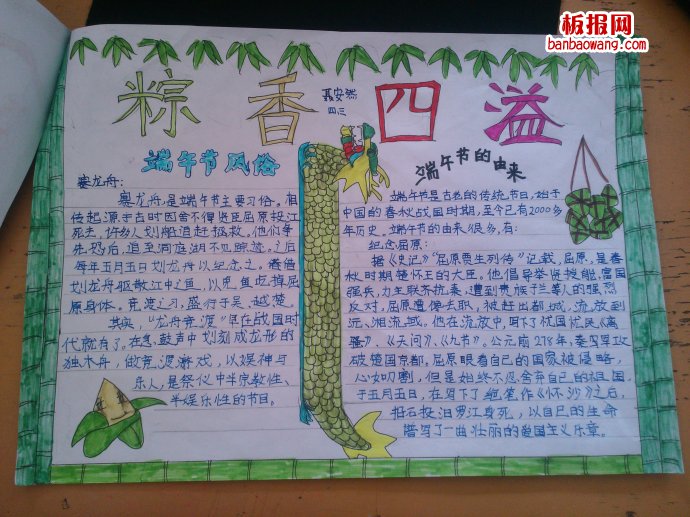 板报网
banbaowang.com
粽香四溢
聂安然
四三
端午节风俗
赛龙舟:
赛龙舟,是端午节主要习俗。相
传起源于古时因舍不得贤臣屈原投江
死去,许多人划船追赶拯救。他们争
先恐后,追至洞庭湖不见踪迹。之后
每年五月五日划龙舟以纪念之。借
划龙舟驱散江中之鱼,以免鱼吃掉屈
原身体。竞渡之习,盛行于吴、越、楚。
其实,“龙舟竞渡”早在战国时
代就有了。在急鼓声中划刻成龙形的
独木舟,做竞渡游戏,以娱神与
乐人,是祭仪中半宗教性、
半娱乐性的节目。
端午节的由来
端午节是古老的传统节日,始于
中国的春秋战国时期,至今已有2000多
年历史。端午节的由来很多,有:
纪念屈原:
据《史记》“屈原贾生列传”记载,屈原,是春
秋时期楚怀王的大臣。他倡导举贤授能,富国
强兵,力主联齐抗秦,遭到贵族子兰等人的强烈
反对,屈原遭馋去职,被赶出都城,流放到
沅、湘流域。他在流放中,写下了忧国忧民《离
骚》、《天问》、《九节》。公元前278年,秦军
破楚国京都。屈原眼看自己的国家被侵略,
心如刀割,但是始终不忍舍弃自己的祖国,
于五月五日,在写下了绝笔作《怀沙》之后,
抱石投汨罗江身死,以自己的生命
谱写了一曲壮丽的爱国主义乐章。